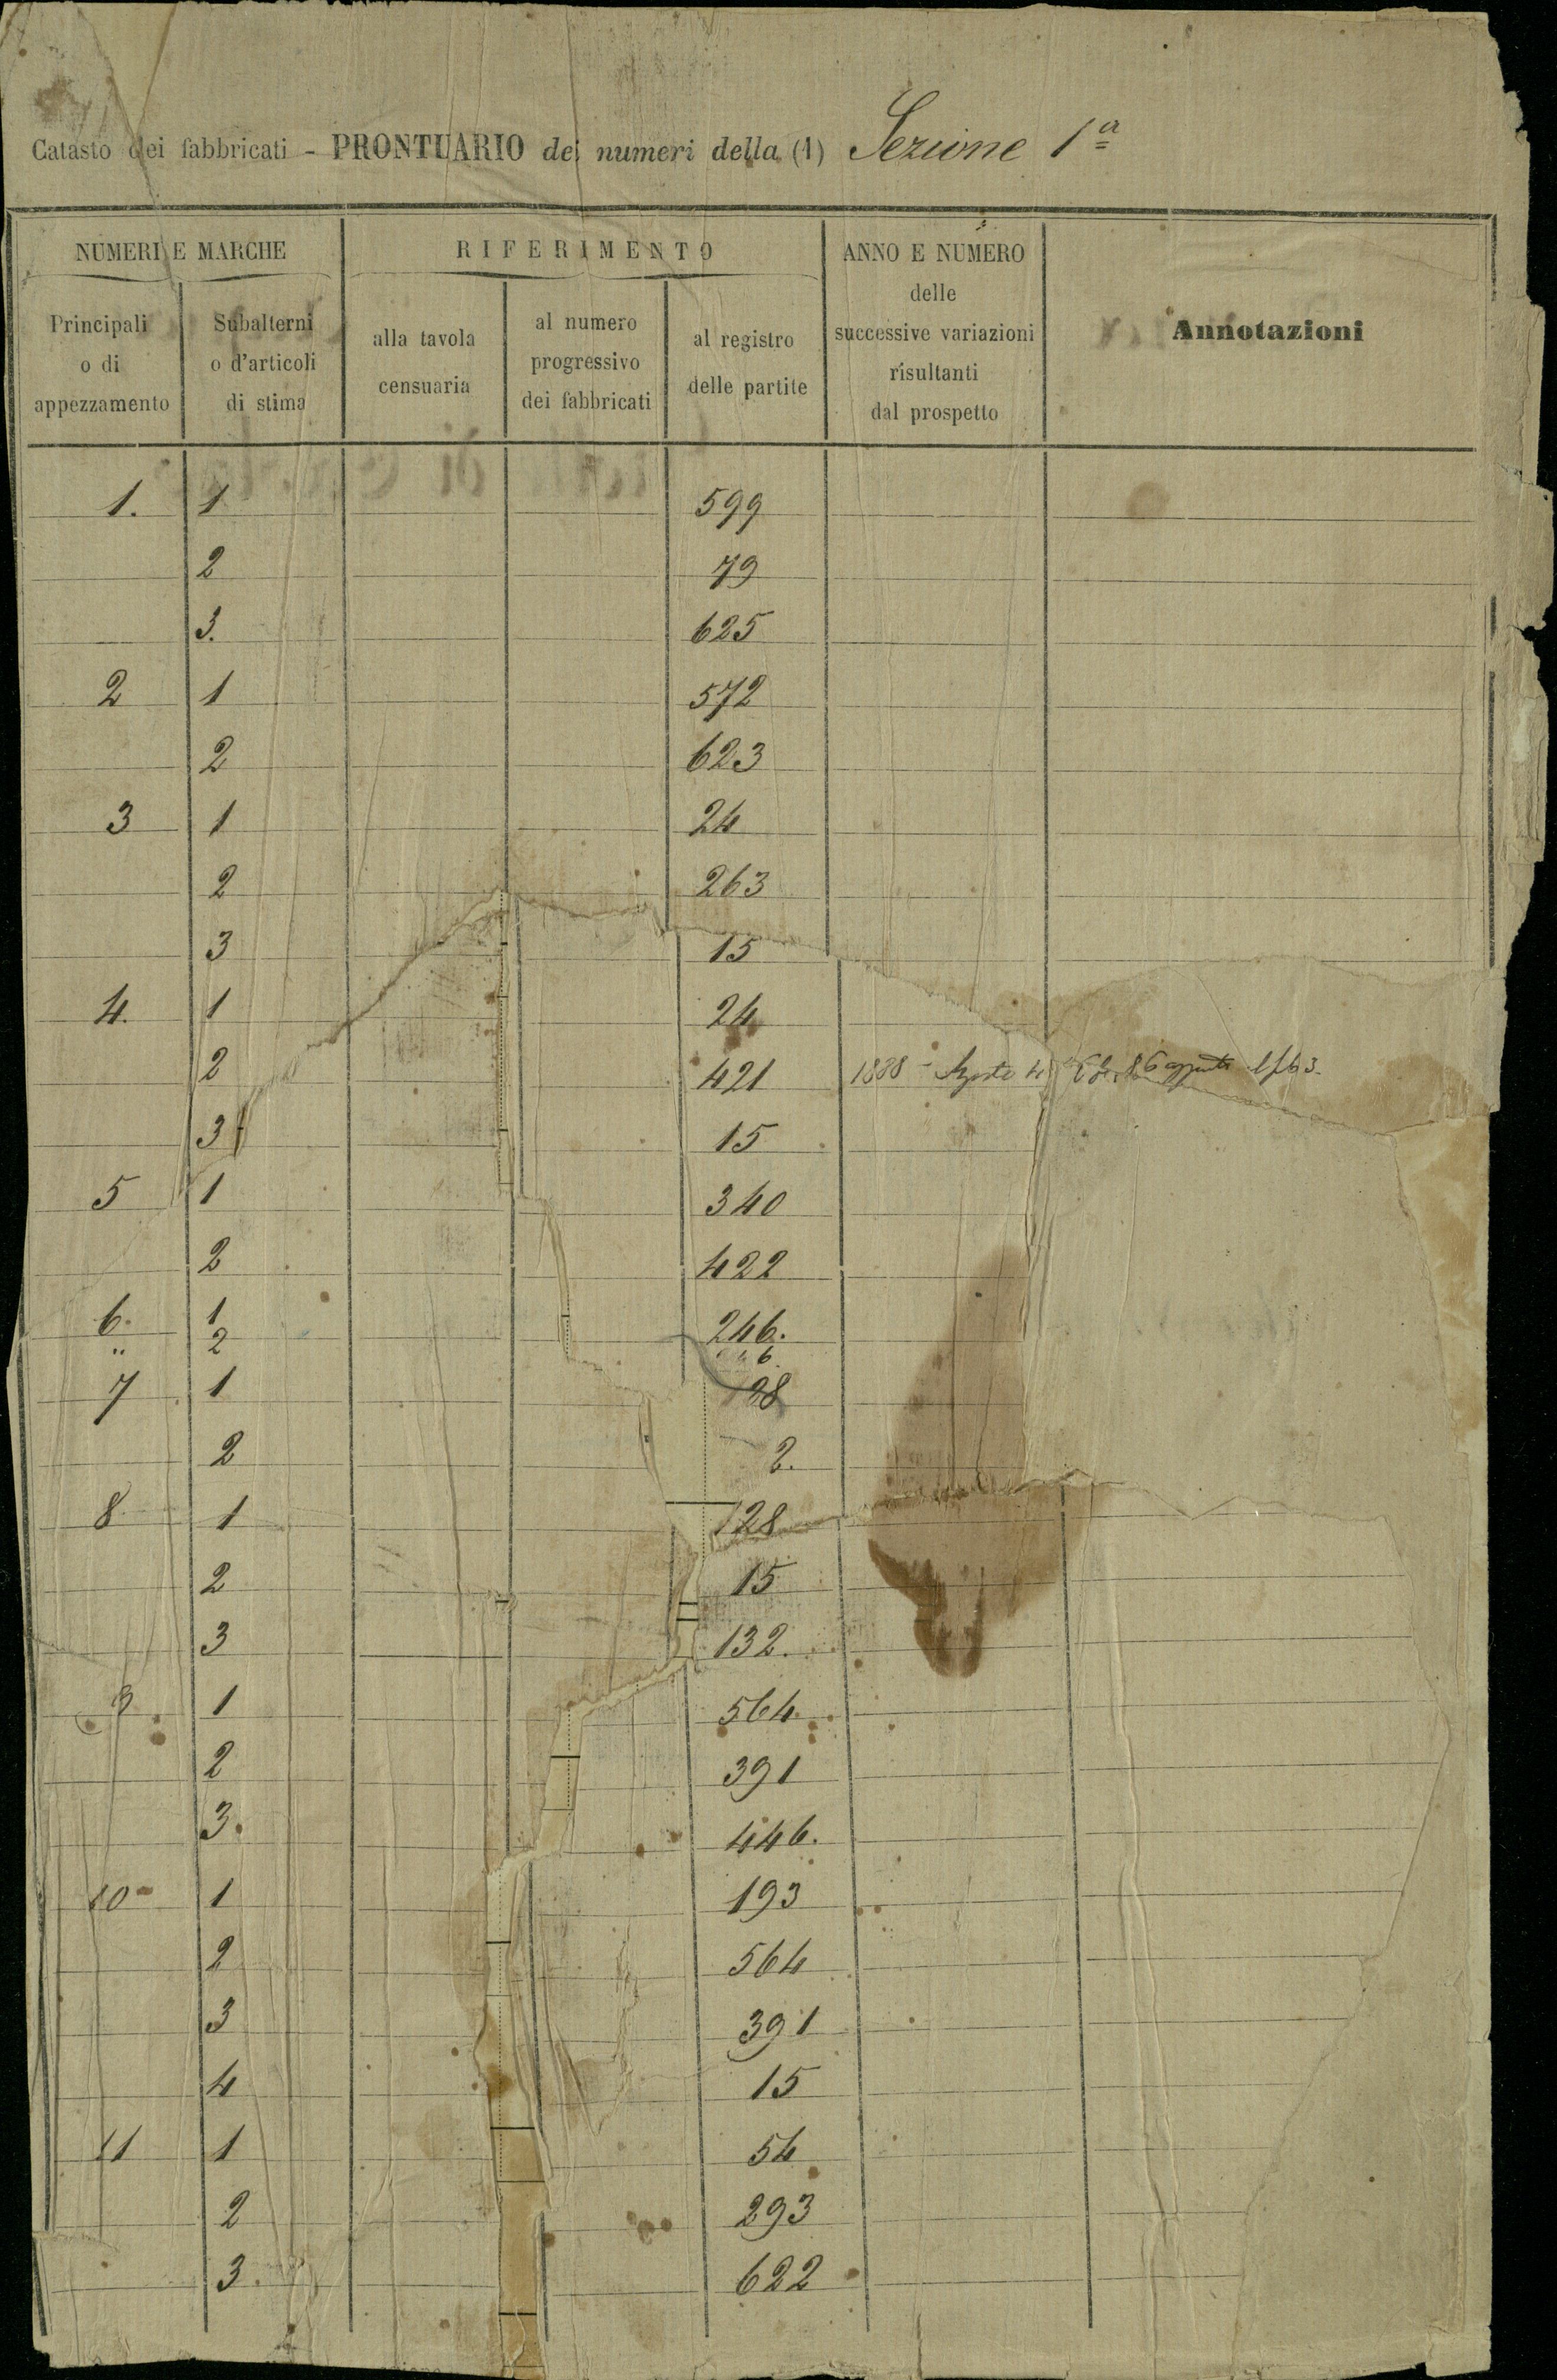 Catasto dei fabbricati - PRONTUARIO dei numeri della (1) Sezione 1ª
NUMERI E MARCHE
Principali
o di
appezzamento
Subalterni
o d'articoli
di stima
RIFERIMENTO
alla tavola
censuaria
al numero
progressivo
dei fabbricati
al registro
delle partite
ANNO E NUMERO
delle
successive variazioni
risultanti
dal prospetto
Annotazioni
1. 1 599
2 79
3. 625
2 1 572
2 623
3 1 24
2 263
3 15
4. 1 24
2 421 1888
3 15
5 1 340
2 422
6. 1 246.
" 2 6
7 1 28
2 2.
8 1 128
2 15
3 132.
9 1 564
2 391
3. 446.
10 1 193
2 564
3 391
4 15
11 1 54
2 293
3 622